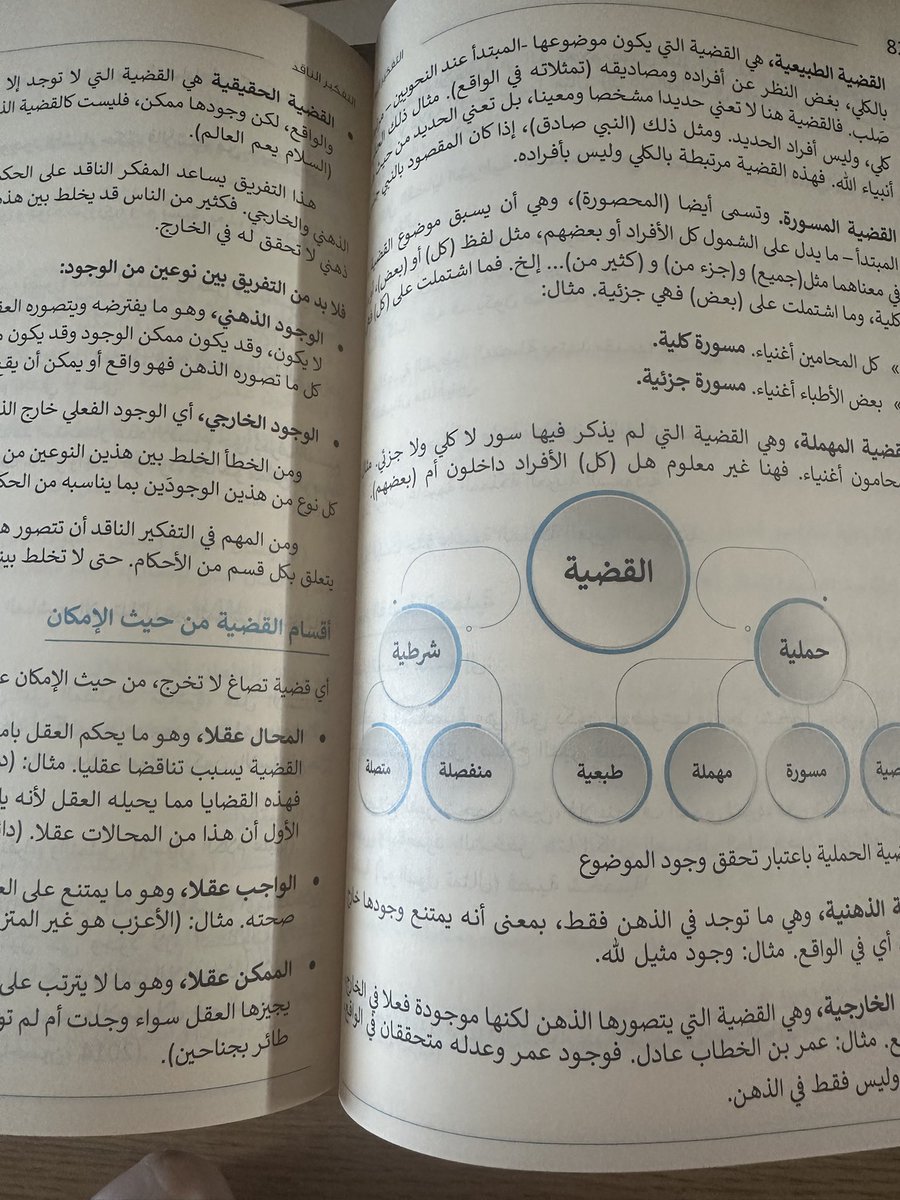 82
القضية الطبيعية، هي القضية التي يكون موضوعها -المبتدأ عند النحويين-
بالكلي، بغض النظر عن أفراده ومصاديقه (تمثلاته في الواقع). مثال ذلك
صَلب. فالقضية هنا لا تعني حديدا مشخصا ومعينا، بل تعني الحديد من حيث
كلي، وليس أفراد الحديد. ومثل ذلك (النبي صادق)، إذا كان المقصود بالنبي
أنبياء الله. فهذه القضية مرتبطة بالكلي وليس بأفراده.
القضية المسورة. وتسمى أيضا (المحصورة)، وهي أن يسبق موضوع
المبتدأ – ما يدل على الشمول كل الأفراد أو بعضهم، مثل لفظ (كل) أو (بعض)،
في معناهما مثل (جميع) و(جزء من) و (كثير من)... إلخ. فما اشتملت على (كل)
كلية، وما اشتملت على (بعض) فهي جزئية. مثال:
» كل المحامين أغنياء. مسورة كلية.
» بعض الأطباء أغنياء. مسورة جزئية.
المهملة، وهي القضية التي لم يذكر فيها سور لا كلي ولا جزئي.
أغنياء. فهنا غير معلوم هل (كل) الأفراد داخلون أم (بعضهم).
القضية
حملية
شرطية
مسورة
مهملة
طبعية
منفصلة
متصلة
الحملية باعتبار تحقق وجود الموضوع
الذهنية، وهي ما توجد في الذهن فقط، بمعنى أنه يمتنع وجودها
أي في الواقع. مثال: وجود مثيل لله.
الخارجية، وهي القضية التي يتصورها الذهن لكنها موجودة فعلا في
مثال: عمر بن الخطاب عادل. فوجود عمر وعدله متحققان في
وليس فقط في الذهن.
التفكير الناقد
• القضية الحقيقية هي القضية التي لا توجد إلا
والواقع، لكن وجودها ممكن، فليست كالقضية
(السلام يعم العالم).
هذا التفريق يساعد المفكر الناقد على
الذهني والخارجي. فكثير من الناس قد يخلط بين
ذهني لا تحقق له في الخارج.
فلا بد من التفريق بين نوعين من الوجود:
• الوجود الذهني، وهو ما يفترضه ويتصوره
لا يكون، وقد يكون ممكن الوجود وقد يكون
كل ما تصوره الذهن فهو واقع أو يمكن أن
• الوجود الخارجي، أي الوجود الفعلي خارج
ومن الخطأ الخلط بين هذين النوعين من
كل نوع من هذين الوجودَين بما يناسبه من
ومن المهم في التفكير الناقد أن تتصور
يتعلق بكل قسم من الأحكام. حتى لا تخلط
أقسام القضية من حيث الإمكان
أي قضية تصاغ لا تخرج، من حيث الإمكان
• المحال عقلا، وهو ما يحكم العقل
القضية يسبب تناقضا عقليا. مثال:
فهذه القضايا مما يحيله العقل لأنه
الأول أن هذا من المحالات عقلا.
• الواجب عقلا، وهو ما يمتنع على
صحته. مثال: (الأعزب هو غير
• الممكن عقلا، وهو ما لا يترتب على
يجيزها العقل سواء وجدت أم لم
طائر بجناحين).